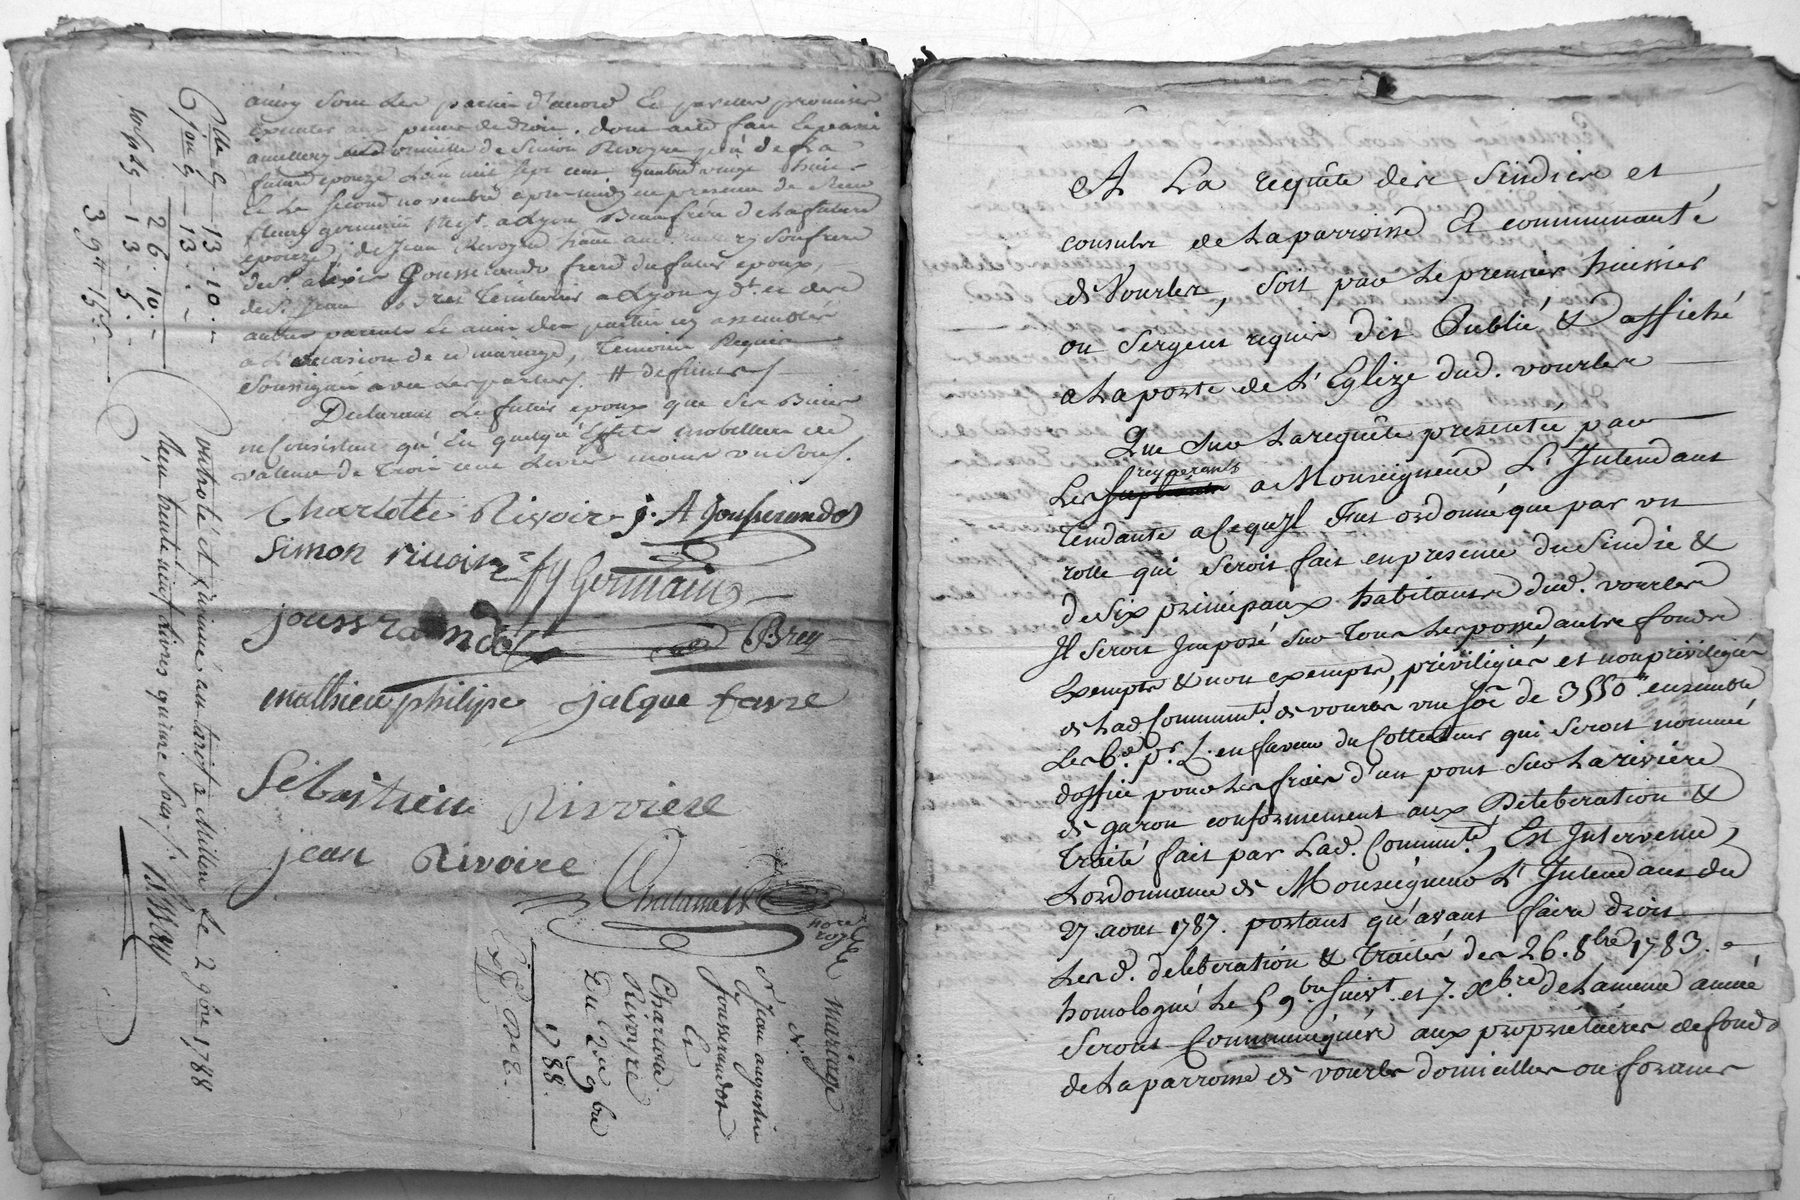 ainsy sont les parties d'accord Et par elles promis
Executer aux peines de droit. dont acte fait Et passé
domicille de Simon Rivoyre pere de la
future epouze L'an mil sept cent quatre vingt huit
Et Le second novembre apres midy en presence de Sieur
fleury germain negt. a Lyon Beaufrère de La future
epouze, de Jean Rivoyre son frere
de Sr. alexis Jousserandot frere du futur epoux,
de S. Jean Teinturier a Lyon, et des
autres parents Et amis des parties icy assemblés
a L'occasion de ce mariage, Temoins Requis
Soussignés avec Les parties. # de fines
Declarant Le futur epoux que ses Biens
ne Consistent qu'En quelqu'Effets mobilliers de
valeur de Trois cent Livres moins un Sous.
Charlotte Rivoire j. A Jousserandot
Simon rivoire fy Germain
jousserandot Brey
mathieu philipe jalque favre
Sébastien Rivviere
jean Rivoire Chatanat
notre
royal
mariage
de
Sr Jean augustin
Jousserandot
Et
Charlotte
Rivoyre
Du 2 9bre
1788.
Elle G — 13. 10. —
13. — —
26. 10. —
13. 5. —
39tt 15s. —
Controlé et insinué au tarif a Millery Le 2 9bre 1788
Reçu trente neuf Livres quinze Sous.
A La requête des Sindics et
consuls de La parroisse Et communauté
de Vourles, soit par Le premier huissier
ou Sergent requis dit Publié & affiché
a La porte de L'Eglize dud. vourles
Que sur La requête presentée par
Les suplians reqgerants a Monseigneur L'Intendant
Tendante a Ce qu'Il Fut ordonné que par un
rolle qui seroit fait en presence du Sindic &
de six principaux habitants dud. vourles
Il seroit Imposé sur Tous Les possedants fonds
Exempts & non exempts, priviligiés et non priviligiés
de Lad. Communté. de vourles une Soe. de 3550tt. ensemble
Les 6. d. pr. L. en faveur du Collecteur qui seroit nommé
d'office pour Les frais d'un pont sur La riviere
de garon conformement aux Deliberation &
Traité fait par Lad. Communté., Est Intervenue,
L'ordonnance de Monseigneur L'Intendant du
27. aout 1787. portant qu'avant faire droit
Les d. deliberation & traités des 26. 8bre 1783. &
homologué Le 5 9bre. suivt. et 7. Xbre de La meme année
Seront Communiqués aux propriétaires de fonds
de La parroisse de vourles domicilles ou forains